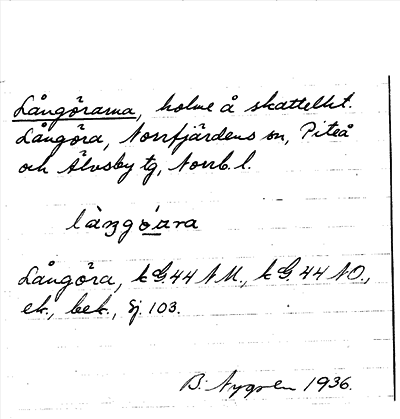 Långörarna, holme å skattelht.
Långöra, Norrfjärdens sn, Piteå
och Älvsby tg, Norrb. l.
làŋgö̀ara
Långöra, k G.44 N.V., k G.44 N.O.,
ek., bek., Sj. 103.
B. Nygren 1936.